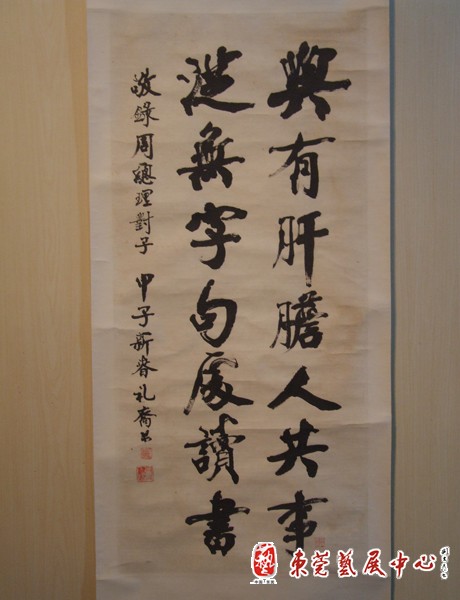 與有肝膽人共事
從無字句處讀書
敬錄周總理對子 甲子新春 礼裔书
東莞藝展中心